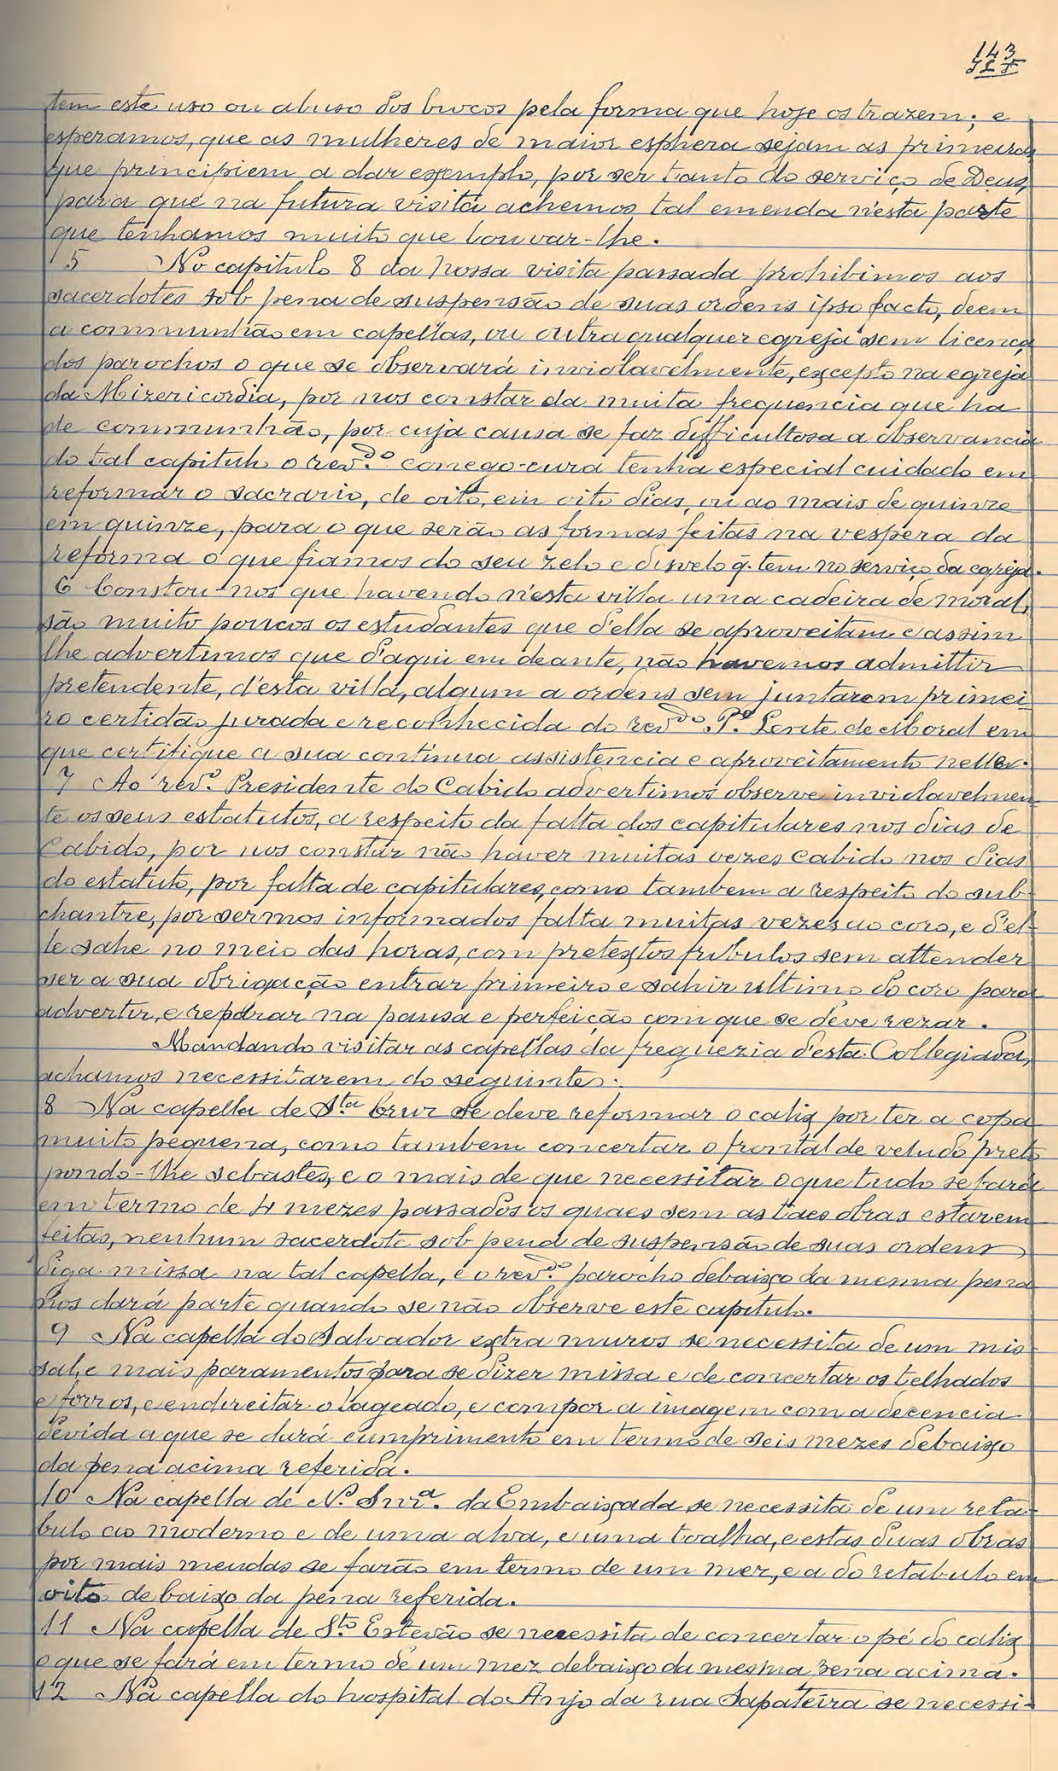 143
tem este uso ou abuso dos bucos pela forma que hoje os trazem; e
esperamos, que as mulheres de maior esphera sejam as primeiras
que principiem a dar exemplo, por ser tanto do serviço de Deus,
para que na futura visita achemos tal emenda n'esta parte
que tenhamos muito que louvar-lhe.
5 No capitulo 8 da nossa visita passada prohibimos aos
sacerdotes sob pena de suspensão de suas ordens ipso facto, deem
a communhão em capellas, ou outra qualquer egreja sem licença
dos parochos o que se observará inviolavelmente, excepto na egreja
da Mizericordia, por nos constar da muita frequencia que ha
de communhão, por cuja causa se faz difficultosa a observancia
do tal capitulo o revdo. conego-cura tenha especial cuidado em
reformar o sacrario, de oito, em oito dias, ou ao mais de quinze
em quinze, para o que serão as formas feitas na vespera da
reforma o que fiamos do seu zelo e disvelo q. tem no serviço da egreja.
6 Constou-nos que havendo n'esta villa uma cadeira de moral,
são muito poucos os estudantes que d'ella se aproveitam e assim
lhe advertimos que d'aqui em deante, não havemos admittir
pretendente, d'esta villa, algum a ordens sem juntarem primei
ro certidão jurada e reconhecida do revdo Pe. Lente de Moral em
que certifique a sua continua assistencia e aproveitamento nella.
7 Ao revo. Presidente do Cabido advertimos observe inviolavelmen
te os seus estatutos, a respeito da falta dos capitulares nos dias de
Cabido, por nos constar não haver muitas vezes cabido nos dias
do estatuto, por falta de capitulares, como tambem a respeito do sub-
chantre, por sermos informados falta muitas vezes ao coro, e d'el-
le sahe no meio das horas, com pretextos fribulos sem attender
ser a sua obrigação entrar primeiro e sahir ultimo do coro para
advertir, e reparar na pausa e perfeição com que se deve rezar.
Mandando visitar as capellas da freguezia d'esta Collegiada,
achamos necessitarem do seguinte:
8 Na capella de Sta Cruz se deve reformar o calix por ter a copa
muito pequena, como tambem concertar o frontal de veludo preto
pondo-lhe sebastes, e o mais de que necessitar o que tudo se fará
em termo de 4 mezes passados os quaes sem as taes obras estarem
feitas, nenhum sacerdote sob pena de suspensão de suas ordens
diga missa na tal capella, e o revdo. parocho debaixo da mesma pena
nos dará parte quando se não observe este capitulo.
9 Na capella do Salvador extra muros se necessita de um mis
sal, e mais paramentos para se dizer missa e de concertar os telhados
e forros, e endireitar o lageado, e compor a imagem com a decencia
devida a que se dará cumprimento em termo de seis mezes debaixo
da pena acima referida.
10 Na capella de Na. Snra. da Embaixada se necessita de um reta-
bulo ao moderno e de uma alva, e uma toalha, e estas duas obras
por mais meudas se farão em termo de um mez, e a do retabulo em
oito debaixo da pena referida.
11 Na capella de Sto. Estevão se necessita de concertar o pé do calix
o que se fará em termo de um mez debaixo da mesma pena acima.
12 Na capella do hospital do Anjo da rua Sapateira se necessi-